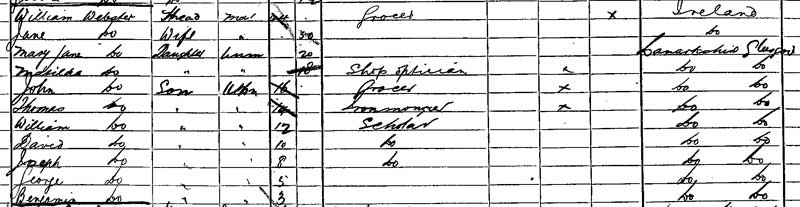 William Webster Head Mar Grocer x Ireland
Jane do Wife " 50 do
Mary Jane do Daughter Unm 20 Lanarkshire Glasgow
Matilda do " " 18 Shop optician x do do
John do Son Unm 16 Grocer x do do
Thomas do " " 14 Ironmonger x do do
William do " 12 Scholar do do
David do " 10 do do do
Joseph do " 8 do do do
George do " 5 do do
Benjamin do " 3 do do